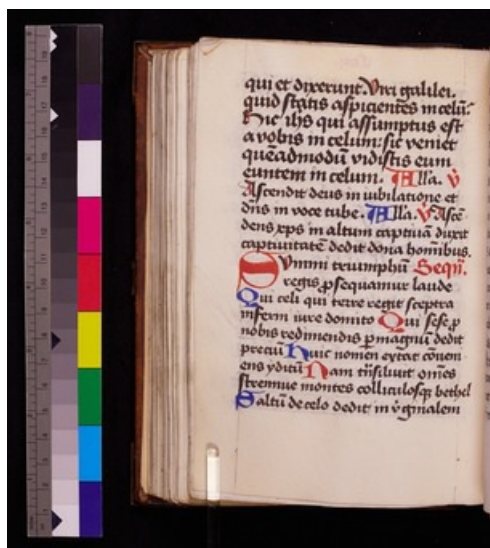 qui et dixerunt. Viri galilei.
quid statis aspicientes in celũ:
hic ihs qui assumptus est
a vobis in celum: sic veniet
quẽadmodũ vidistis eum
euntem in celum. Alla. ℣
Ascendit deus in iubilatione et
dñs in voce tube. Alla. ℣ Ascẽ
dens xp̃s in altum captiuã duxit
captiuitatẽ dedit dona hom̃ibus.
Summi triumphũ Seqũ.
regis ꝓsequamur laude
Qui celi qui terre regit sceptra
inferni iure domito Qui sese ꝓ
nobis redimendis ꝑ magnũ dedit
preciũ Huic nomen extat cõueni
ens yditũ Nam trãsiluit om̃es
strennue montes colliculosqꝫ bethel
Saltũ de celo dedit in v̓ginalem